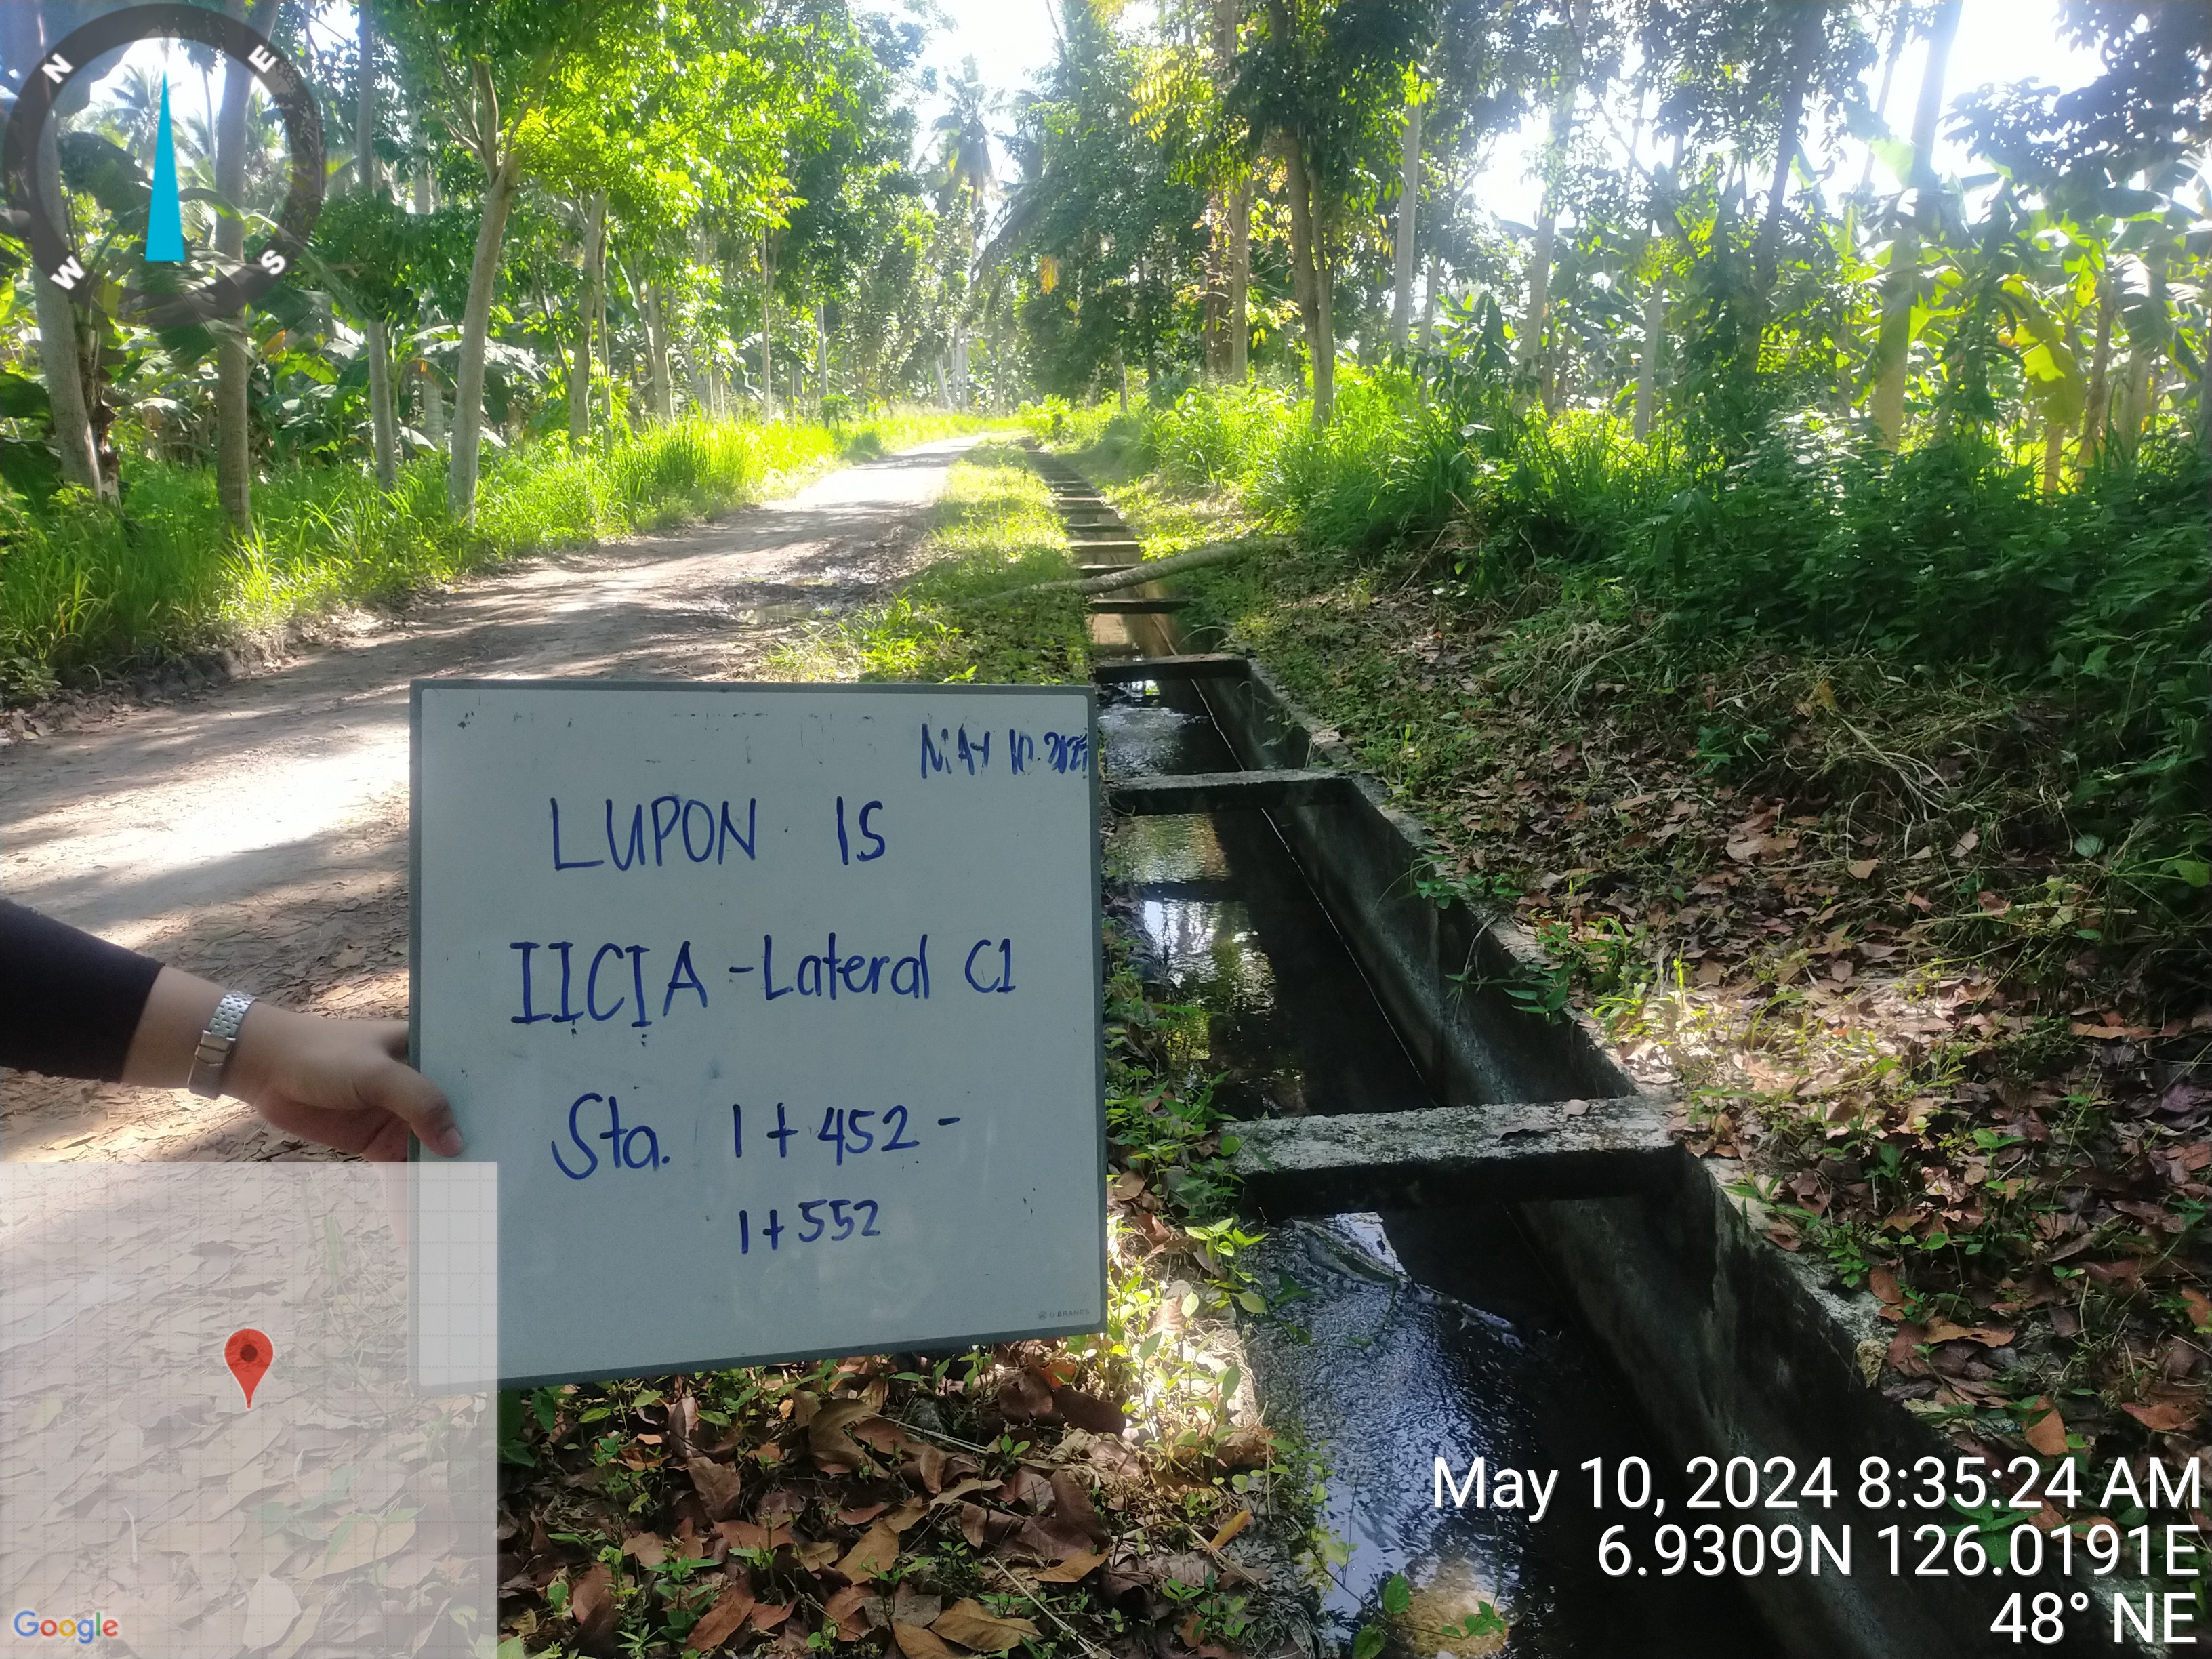 N
E
W
S
MAY 10. 2024
LUPON IS
IICIA - Lateral C1
Sta. 1+452 -
1+552
U BRANDS
Google
May 10, 2024 8:35:24 AM
6.9309N 126.0191E
48° NE